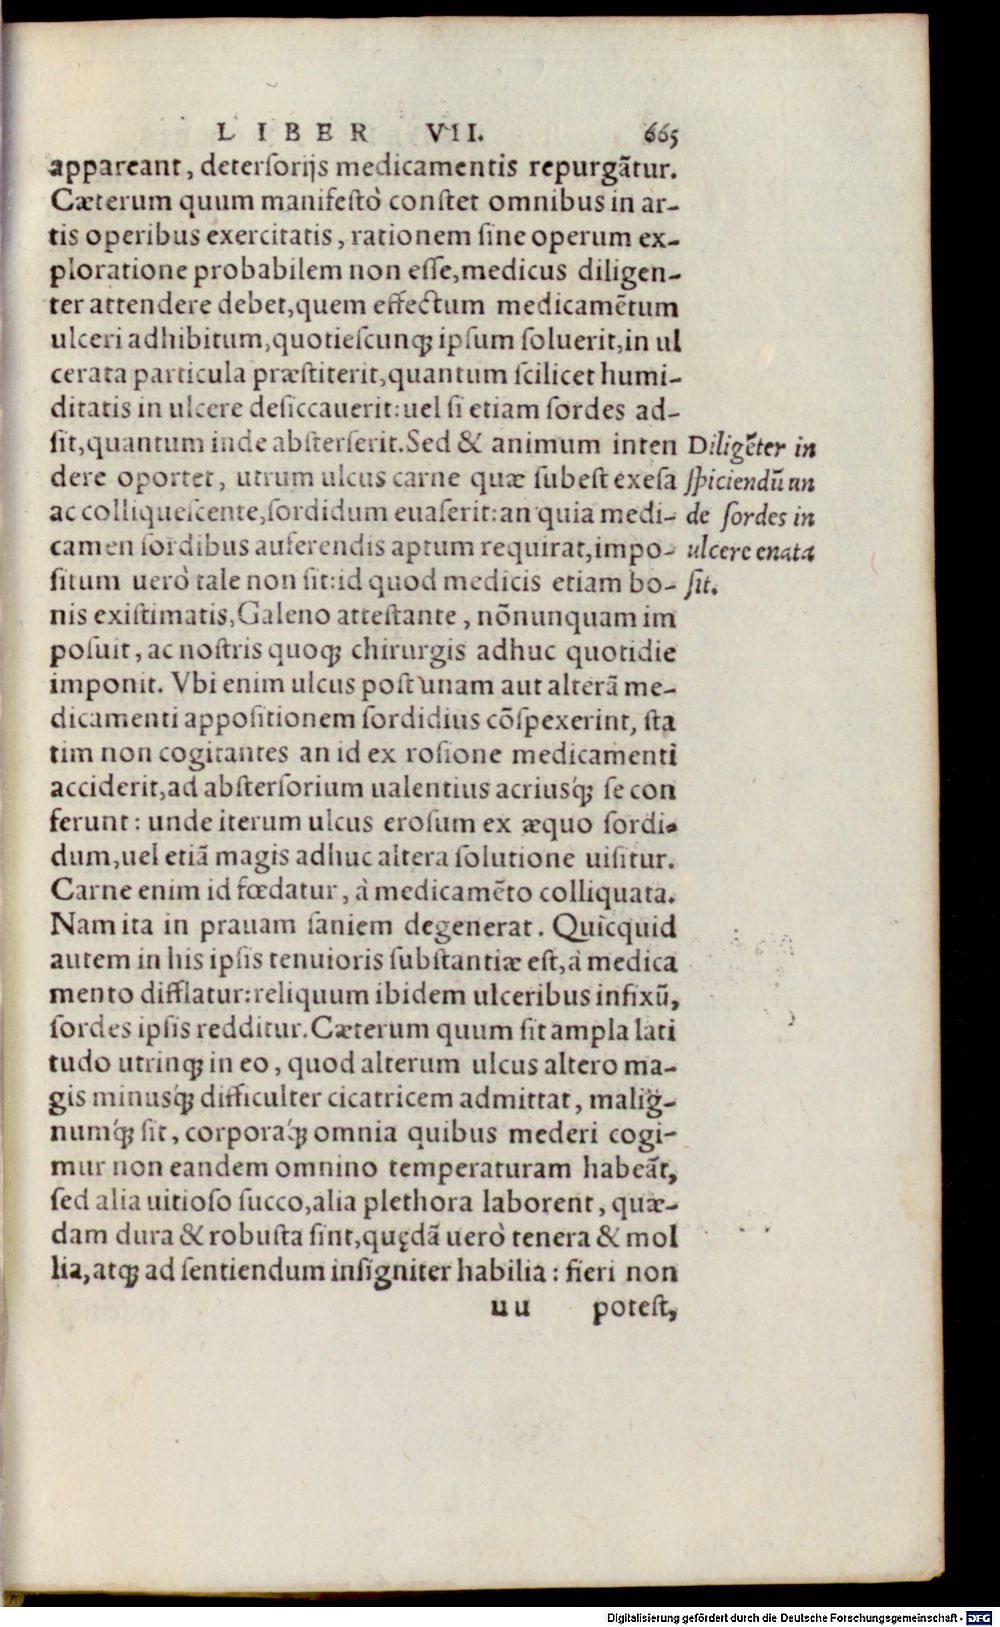 LIBER VII. 665
appareant, deterſorijs medicamentis repurgãtur.
Cæterum quum manifeſtò conſtet omnibus in ar-
tis operibus exercitatis, rationem ſine operum ex-
ploratione probabilem non eſſe, medicus diligen-
ter attendere debet, quem effectum medicamẽtum
ulceri adhibitum, quotieſcunqꝫ ipſum ſoluerit, in ul
cerata particula præſtiterit, quantum ſcilicet humi-
ditatis in ulcere deſiccauerit: uel ſi etiam ſordes ad-
ſit, quantum inde abſterſerit. Sed & animum inten
dere oportet, utrum ulcus carne quæ ſubeſt exeſa
ac colliqueſcente, ſordidum euaſerit: an quia medi-
camen ſordibus auferendis aptum requirat, impo-
ſitum uerò tale non ſit: id quod medicis etiam bo-
nis exiſtimatis, Galeno atteſtante, nõnunquam im
poſuit, ac noſtris quoqꝫ chirurgis adhuc quotidie
imponit. Vbi enim ulcus poſt unam aut alterã me-
dicamenti appoſitionem ſordidius cõſpexerint, ſta
tim non cogitantes an id ex roſione medicamenti
acciderit, ad abſterſorium ualentius acriusq́ꝫ ſe con
ferunt: unde iterum ulcus eroſum ex æquo ſordi-
dum, uel etiã magis adhuc altera ſolutione uiſitur.
Carne enim id fœdatur, à medicamẽto colliquata.
Nam ita in prauam ſaniem degenerat. Quicquid
autem in his ipſis tenuioris ſubſtantiæ eſt, à medica
mento difflatur: reliquum ibidem ulceribus infixũ,
ſordes ipſis redditur. Cæterum quum ſit ampla lati
tudo utrinqꝫ in eo, quod alterum ulcus altero ma-
gis minusq́ꝫ difficulter cicatricem admittat, malig-
numq́ꝫ ſit, corporaq́ꝫ omnia quibus mederi cogi-
mur non eandem omnino temperaturam habeãt,
ſed alia uitioſo ſucco, alia plethora laborent, quæ-
dam dura & robuſta ſint, quędã uerò tenera & mol
lia, atqꝫ ad ſentiendum inſigniter habilia: fieri non
uu poteſt,
Diligẽter in
ſpiciendũ un
de ſordes in
ulcere enata
ſit.
Digitalisierung gefördert durch die Deutsche Forschungsgemeinschaft - DFG